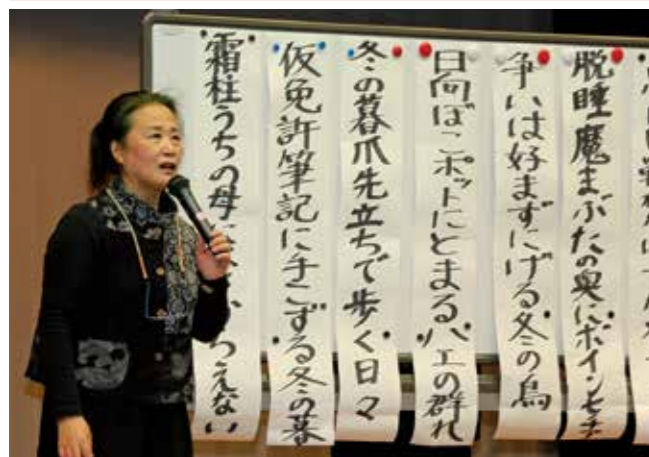 脱睡魔まぶたの奥にポインセチ
争いは好まずにげる冬の鳥
日向ぼこポットにとまるハエの群れ
冬の暮爪先立ちで歩く日々
仮免許筆記にてこずる冬の暮
霜柱うちの母 えない